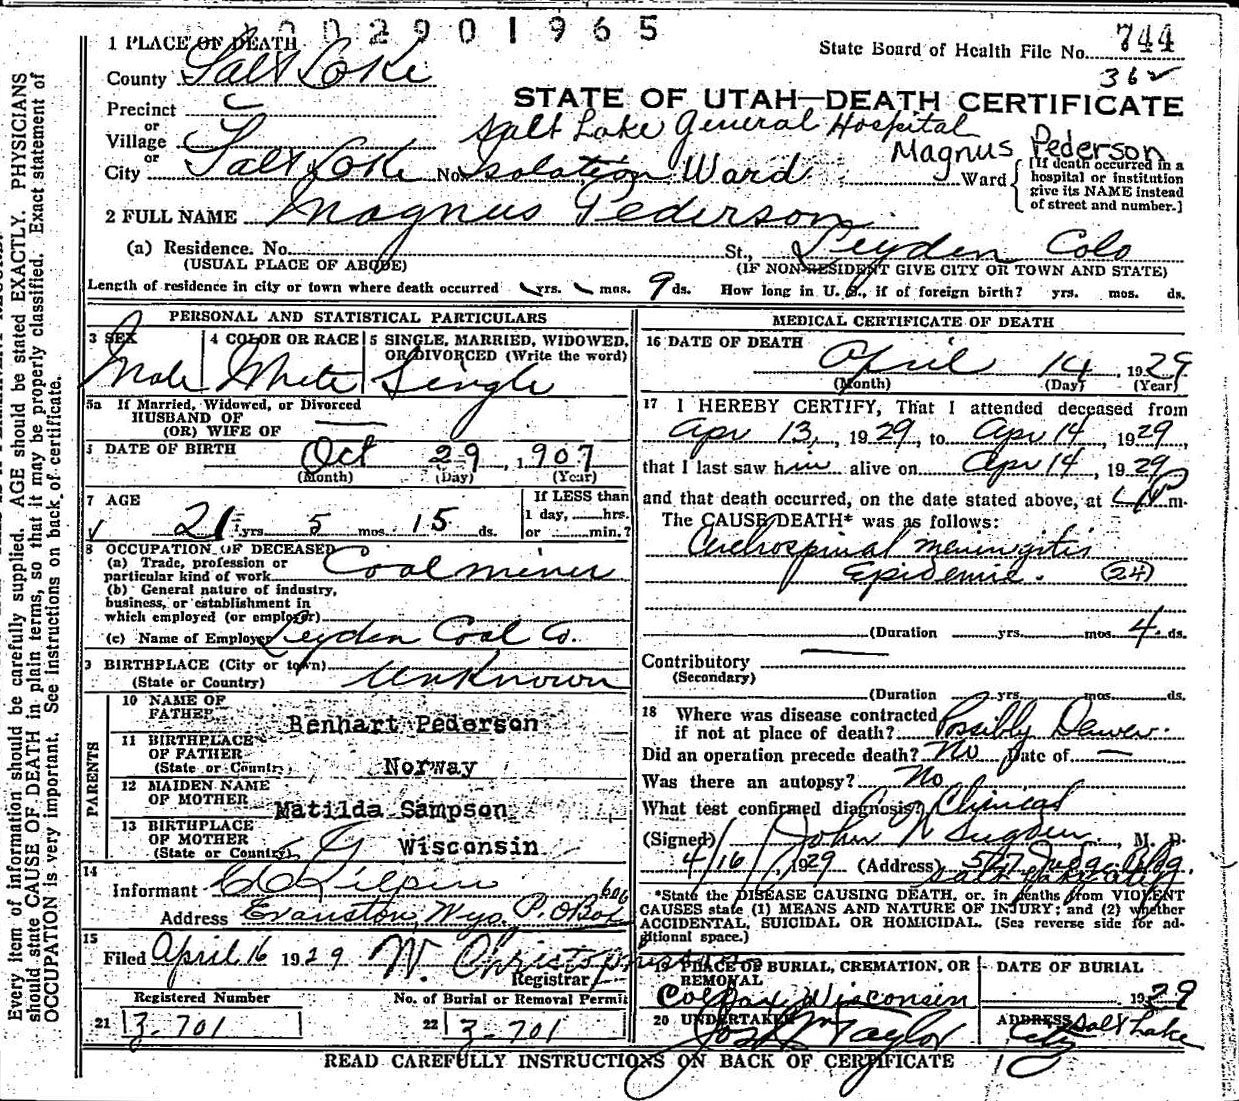 002901965
1 PLACE OF DEATH
State Board of Health File No. 744
County Salt Lake
362
STATE OF UTAH—DEATH CERTIFICATE
Precinct
or
Village
Salt Lake General Hospital
or
Magnus Pederson
City Salt Lake No. Isolation Ward Ward
[If death occurred in a hospital or institution give its NAME instead of street and number.]
2 FULL NAME Magnus Pederson
(a) Residence. No. St., Leyden Colo
(USUAL PLACE OF ABODE) (IF NON-RESIDENT GIVE CITY OR TOWN AND STATE)
Length of residence in city or town where death occurred yrs. mos. 9 ds. How long in U. S., if of foreign birth? yrs. mos. ds.
PERSONAL AND STATISTICAL PARTICULARS
3 SEX 4 COLOR OR RACE 5 SINGLE, MARRIED, WIDOWED, OR DIVORCED (Write the word)
Male White Single
5a If Married, Widowed, or Divorced
HUSBAND OF
(OR) WIFE OF
DATE OF BIRTH Oct 29, 1907
(Month) (Day) (Year)
7 AGE
If LESS than
1 day, hrs.
21 yrs 5 mos. 15 ds. or min.?
8 OCCUPATION OF DECEASED
(a) Trade, profession or
particular kind of work Coal miner
(b) General nature of industry,
business, or establishment in
which employed (or employer)
(c) Name of Employer Leyden Coal Co.
9 BIRTHPLACE (City or town)
(State or Country) Unknown
PARENTS
10 NAME OF
FATHER Benhart Pederson
11 BIRTHPLACE
OF FATHER
(State or Country) Norway
12 MAIDEN NAME
OF MOTHER Matilda Sampson
13 BIRTHPLACE
OF MOTHER
(State or Country) Wisconsin
14
Informant
Address Evanston, Wyo P.O Box 606
15
Filed April 16 1929 W. Christopherson
Registrar
Registered Number No. of Burial or Removal Permit
21 3-701 22 3-701
MEDICAL CERTIFICATE OF DEATH
16 DATE OF DEATH
April 14, 1929
(Month) (Day) (Year)
17 I HEREBY CERTIFY, That I attended deceased from
Apr 13, 1929, to Apr 14, 1929,
that I last saw him alive on Apr 14, 1929
and that death occurred, on the date stated above, at m.
The CAUSE DEATH* was as follows:
Cerebrospinal meningitis
Epidemic. (24)
(Duration yrs. mos 4 ds.
Contributory
(Secondary)
(Duration yrs. mos. ds.
18 Where was disease contracted
if not at place of death? Possibly Denver.
Did an operation precede death? No Date of
Was there an autopsy? No
What test confirmed diagnosis? Clinical
(Signed) John N Sugden, M. D.
4/16/, 1929 (Address) Judge Bldg.
Salt Lake City
*State the DISEASE CAUSING DEATH, or, in deaths from VIOLENT
CAUSES state (1) MEANS AND NATURE OF INJURY; and (2) whether
ACCIDENTAL, SUICIDAL OR HOMICIDAL. (See reverse side for ad-
ditional space.)
19 PLACE OF BURIAL, CREMATION, OR DATE OF BURIAL
REMOVAL
Colfax, Wisconsin 1929
20 UNDERTAKER ADDRESS Salt Lake
Jos Wm Taylor City
READ CAREFULLY INSTRUCTIONS ON BACK OF CERTIFICATE
Every item of information should be carefully supplied. AGE should be stated EXACTLY. PHYSICIANS
should state CAUSE OF DEATH in plain terms, so that it may be properly classified. Exact statement of
OCCUPATION is very important. See instructions on back of certificate.